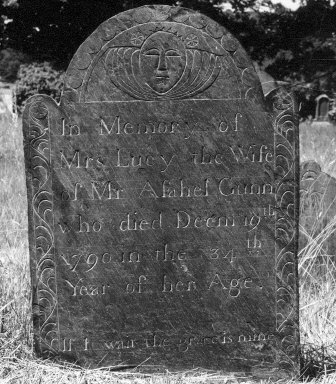 In Memory of
Mrs Lucy the Wife
of Mr Asahel Gunn
who died Decm 19th
1790 in the 34th
Year of her Age.
If I wait the grave is mine